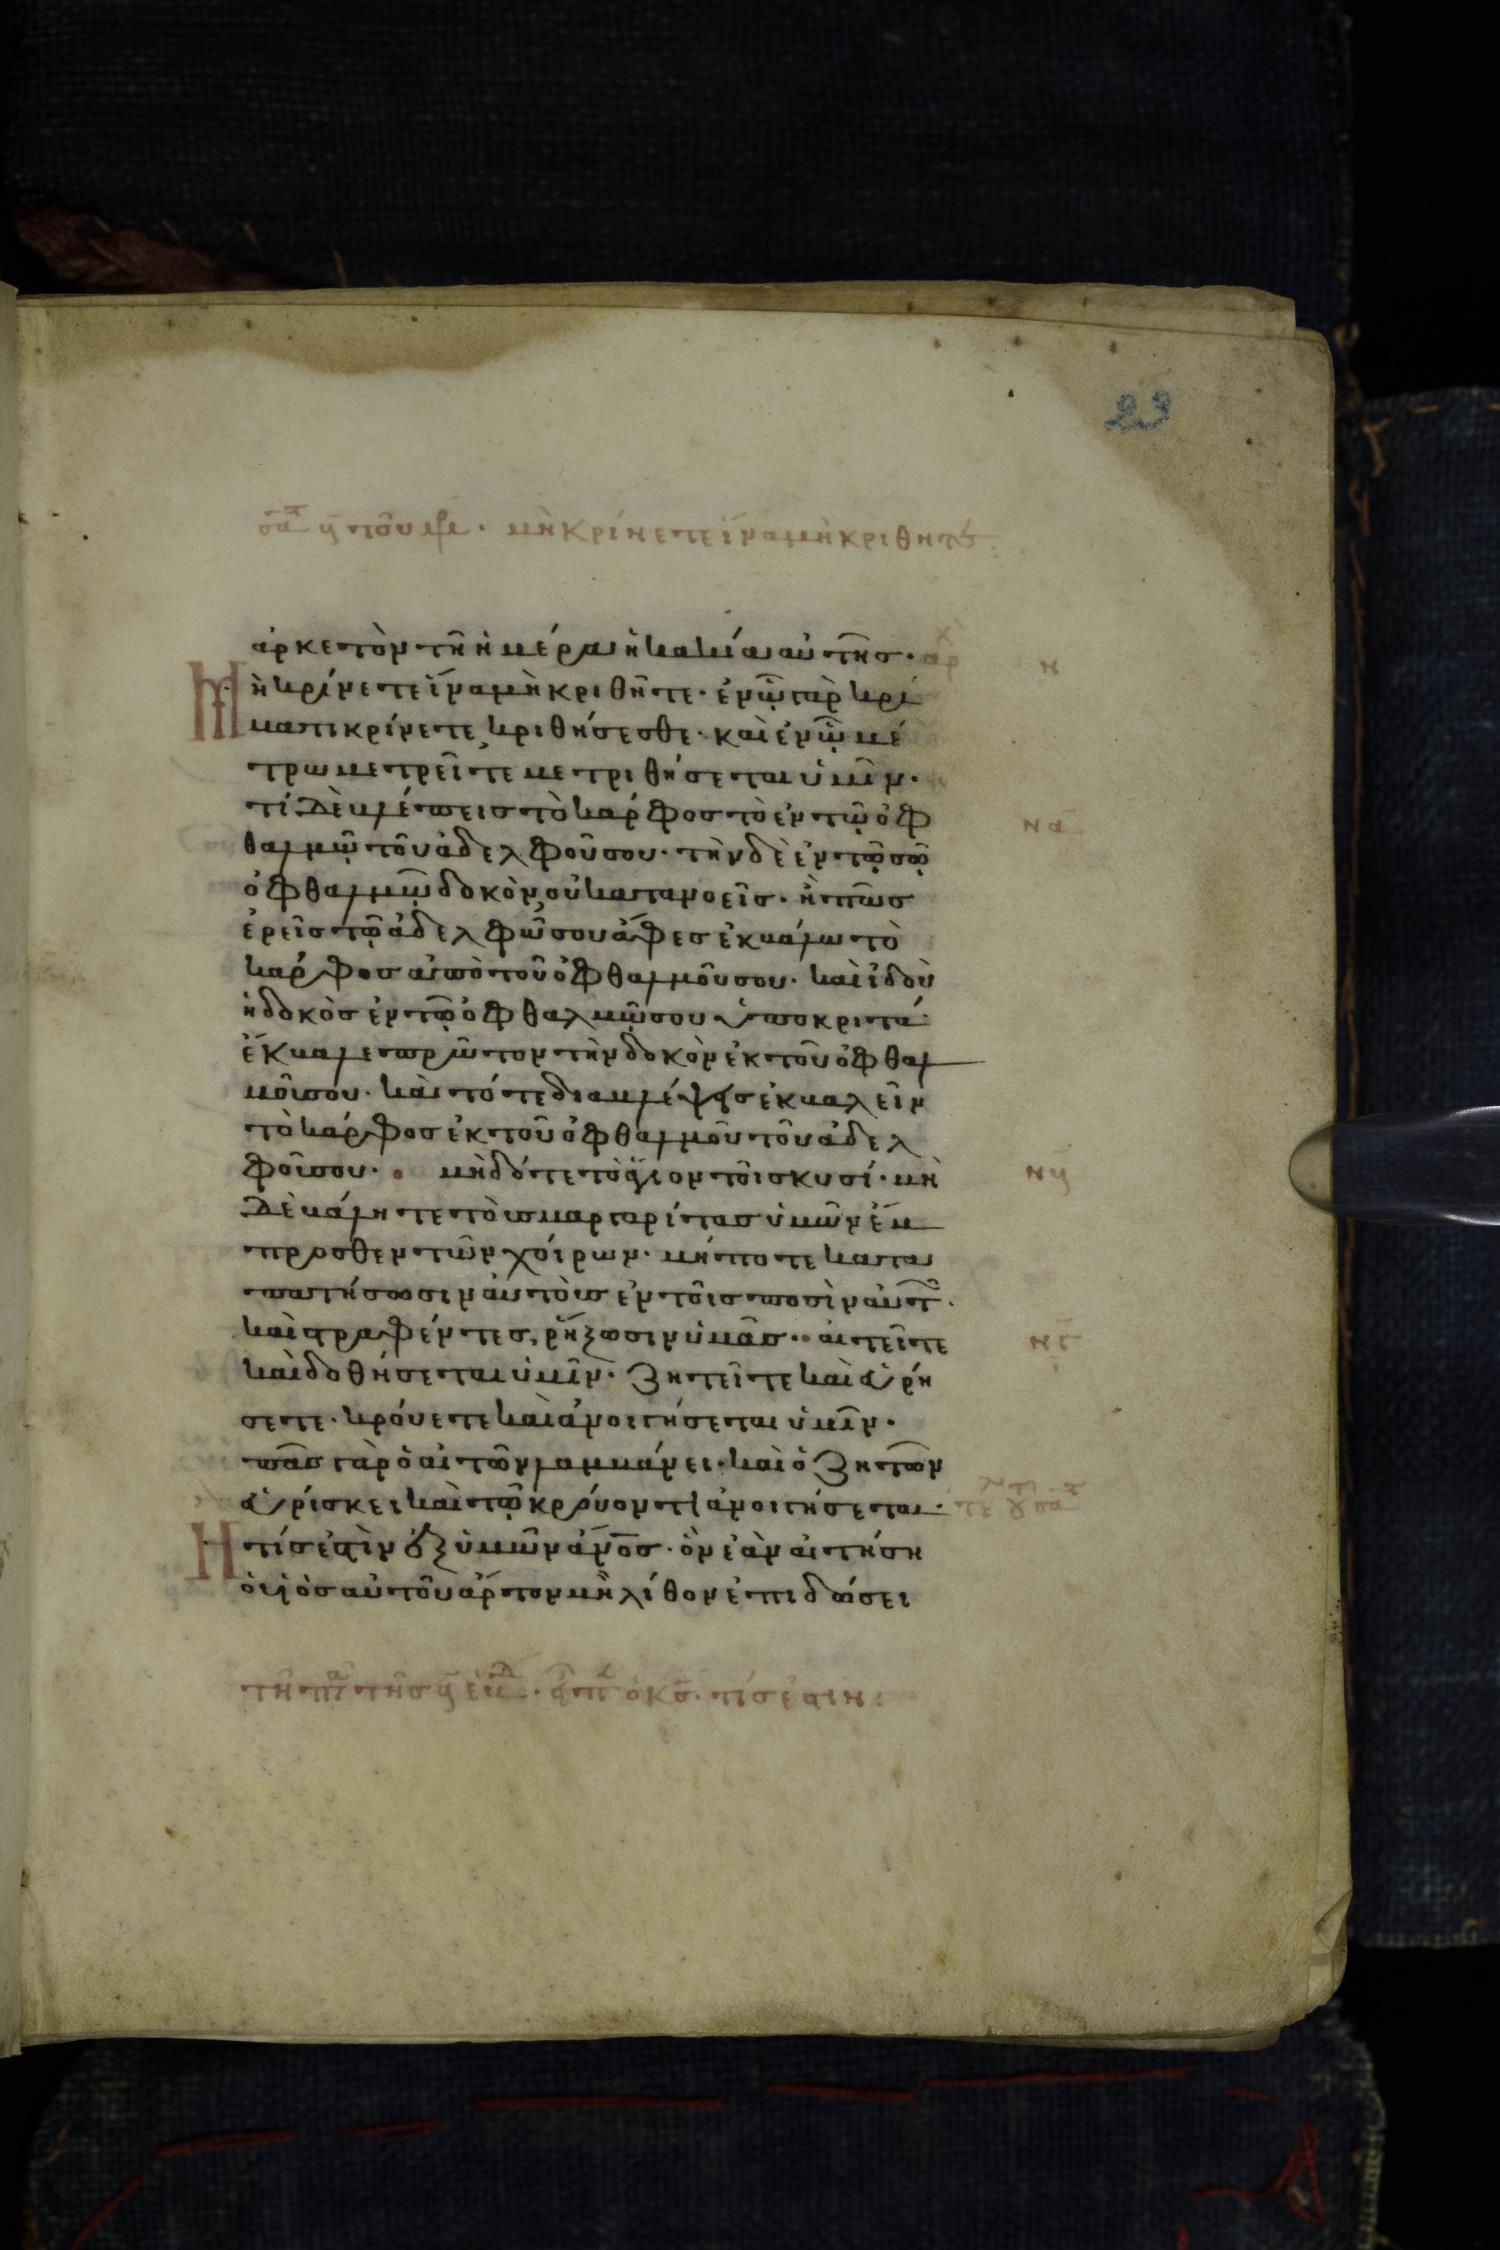 23
μὴ κρίνετε ἵνα μὴ κριθητε
ἀρκετὸν τῆ ἡμέρα ἡ κακία αὐτῆς·
Μὴ κρίνετε ἵνα μὴ κριθῆτε· ἐν ᾧ γὰρ κρί
ματι κρίνετε, κριθήσεσθε· καὶ ἐν ᾧ μέ
τρω μετρεῖτε μετριθήσεται ὑμῖν·
τί δὲ βλέπεις τὸ κάρφος τὸ ἐν τῷ ὀφ
θαλμῷ τοῦ ἀδελφοῦ σου· τὴν δὲ ἐν τῷ σῷ
ὀφθαλμῷ δοκὸν, οὐ κατανοεῖς· ἢ πῶς
ἐρεῖς τῷ ἀδελφῶ σου ἄφες ἐκβάλω τὸ
κάρφος ἀπὸ τοῦ ὀφθαλμοῦ σου· καὶ ἰδοὺ
ἡ δοκὸς ἐν τῷ ὀφθαλμῷ σου· ὑποκριτά·
ἔκβαλε πρῶτον τὴν δοκὸν ἐκ τοῦ ὀφθαλ
μοῦ σου· καὶ τότε διαβλέψεις ἐκβαλεῖν
τὸ κάρφος ἐκ τοῦ ὀφθαλμοῦ τοῦ ἀδελ
φοῦ σου· μὴ δότε τὸ ἅγιον τοῖς κυσί· μὴ
δὲ βάλητε τοὺς μαργαρίτας ὑμῶν ἔμ
προσθεν τῶν χοίρων· μήποτε κατα
πατήσωσιν αὐτοὺς ἐν τοῖς ποσὶν αὐτῶ·
καὶ στραφέντες, ῥήξωσιν ὑμᾶς· αἰτεῖτε
καὶ δοθήσεται ὑμῖν· ζητεῖτε καὶ εὑρή
σετε· κρούετε καὶ ἀνοιγήσεται ὑμῖν·
πᾶς γὰρ ὁ αἰτῶν λαμβάνει· καὶ ὁ ζητῶν
εὑρίσκει καὶ τῷ κρούοντι ἀνοιγήσεται·
Η τίς ἐστὶν ἐξ ὑμῶν ἄνος· ὃν ἐὰν αἰτήση
ὁ υἱὸς αὐτοῦ ἄρτον μὴ λίθον ἐπιδώσει
τίς ἐστιν